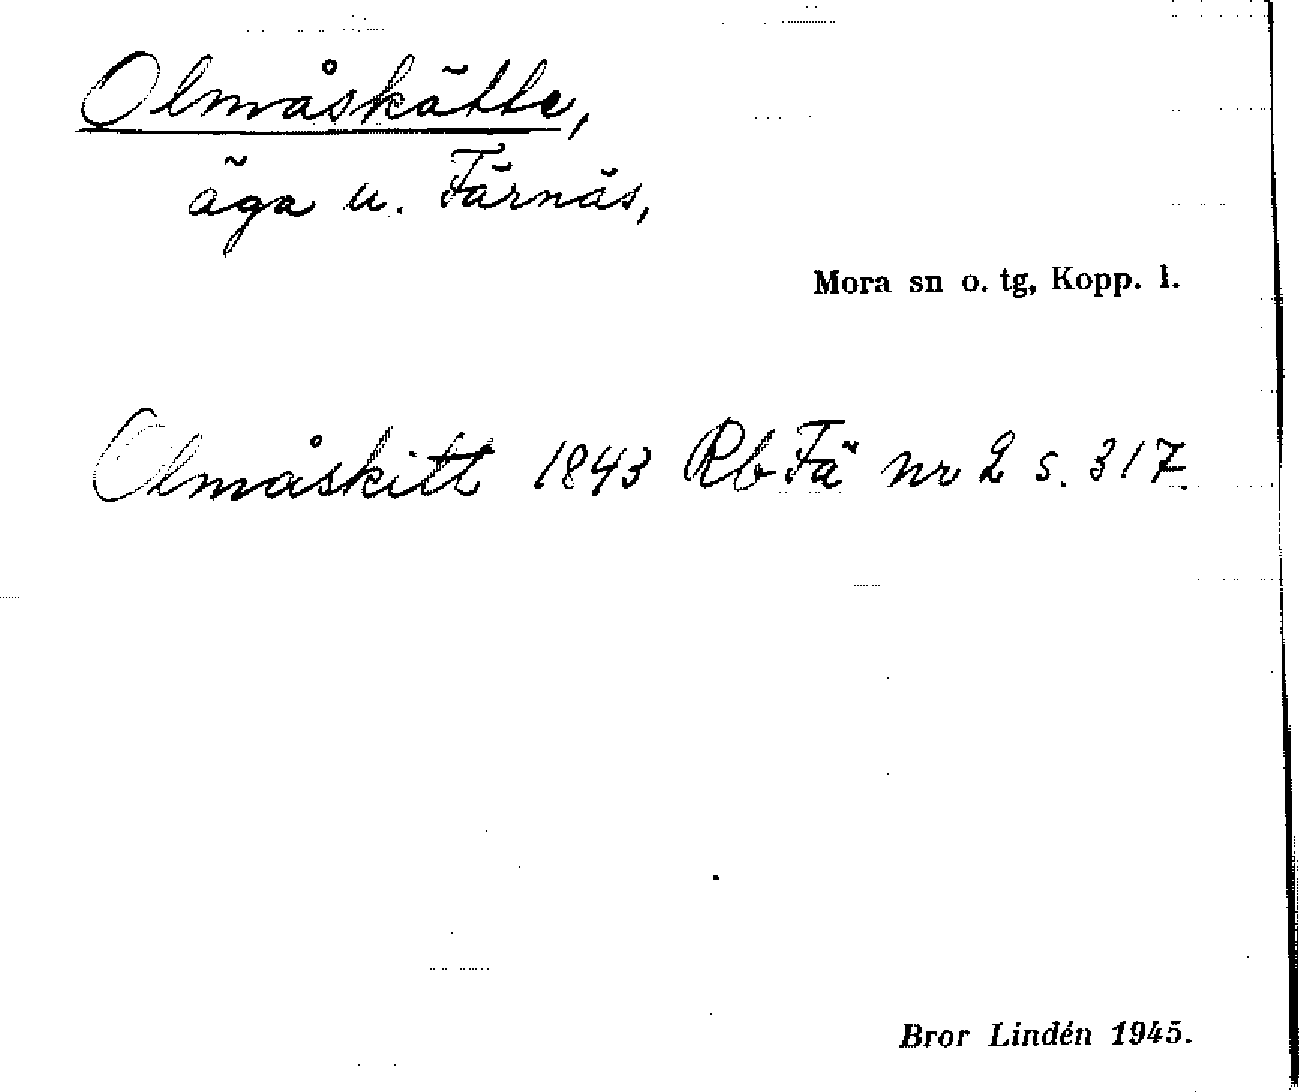 Olmåskätte,
äga u. Färnäs,
Mora sn o. tg, Kopp. l.
Olmåskitt 1843 Rb Fä nr 2 s. 317.
Bror Lindén 1945.